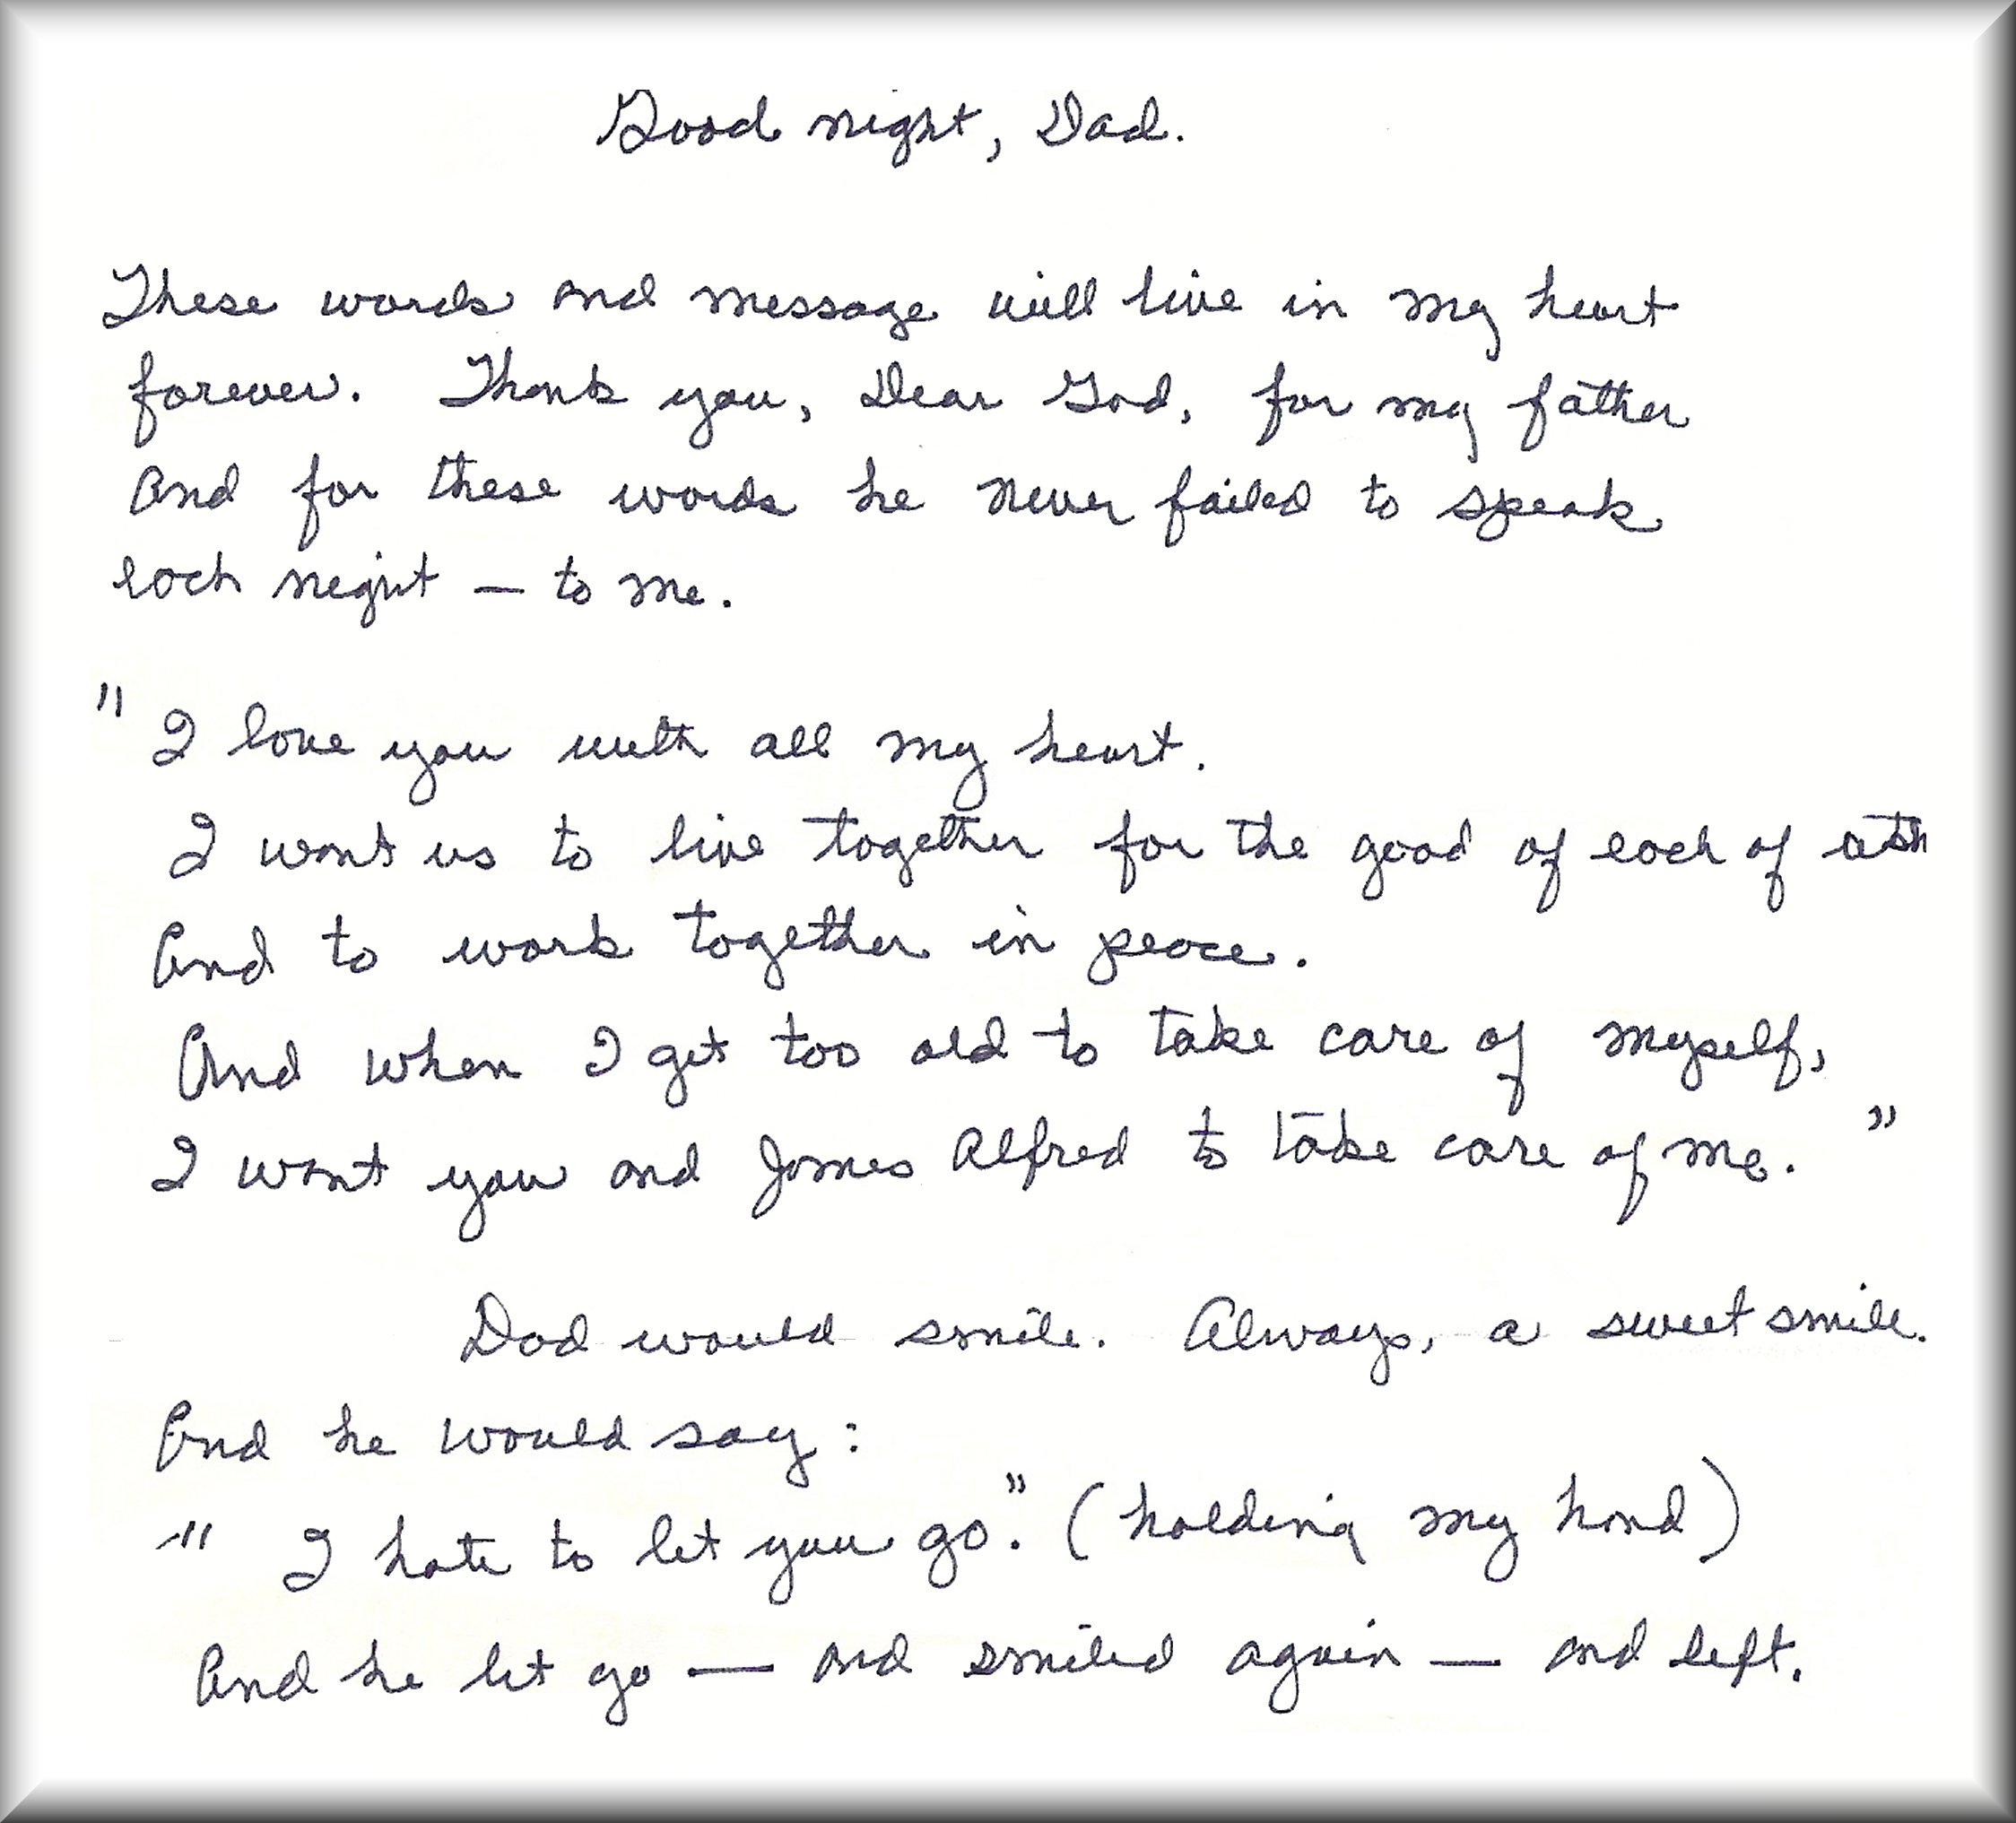 Good night, Dad.
These words and message will live in my heart
forever. Thank you, Dear God, for my father
And for these words he never failed to speak
each night — to me.
" I love you with all my heart.
I want us to live together for the good of each of
And to work together in peace.
And when I get too old to take care of myself,
I want you and James Alfred to take care of me. "
Dad would smile. Always, a sweet smile.
And he would say:
" I hate to let you go." (holding my hand)
And he let go — and smiled again — and left.